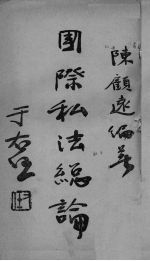 陳顧遠編著
國際私法總論
于右任